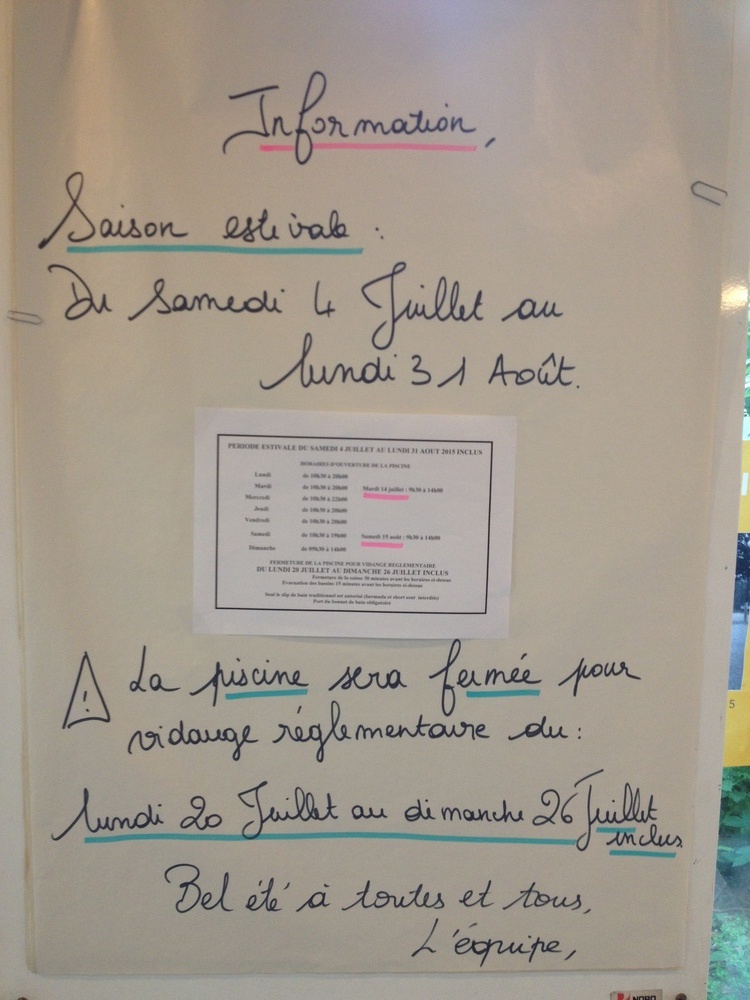 Information,
Saison estivale :
Du Samedi 4 Juillet au
lundi 31 Août.
PERIODE ESTIVALE DU SAMEDI 4 JUILLET AU LUNDI 31 AOUT 2015 INCLUS
HORAIRES D'OUVERTURE DE LA PISCINE
Lundi de 10h30 à 20h00
Mardi de 10h30 à 20h00 Mardi 14 juillet : 9h30 à 14h00
Mercredi de 10h30 à 22h00
Jeudi de 10h30 à 20h00
Vendredi de 10h30 à 20h00
Samedi de 10h30 à 19h00 Samedi 15 août : 9h30 à 14h00
Dimanche de 09h30 à 14h00
FERMETURE DE LA PISCINE POUR VIDANGE REGLEMENTAIRE
DU LUNDI 20 JUILLET AU DIMANCHE 26 JUILLET INCLUS
Fermeture de la caisse 30 minutes avant les horaires ci-dessus
Evacuation des bassins 15 minutes avant les horaires ci-dessus
Seul le slip de bain traditionnel est autorisé (bermuda et short sont interdits)
Port du bonnet de bain obligatoire
! La piscine sera fermée pour
vidange réglementaire du :
lundi 20 Juillet au dimanche 26 Juillet
inclus
Bel été à toutes et tous,
L'équipe,
5
NOBO